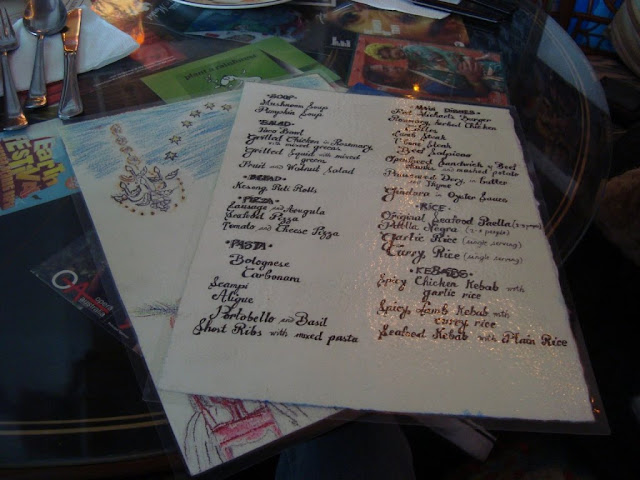 ·SOUP·
Mushroom Soup
Pumpkin Soup
·SALAD·
Taco Bowl
Grilled Chicken in Rosemary
with mixed greens
Grilled Squid with mixed
green
Fruit and Walnut Salad
·BREAD·
Kesong Puti Rolls
·PIZZA·
Sausage and Arugula
Seafood Pizza
Tomato and Cheese Pizza
·PASTA·
Bolognese
Carbonara
Scampi
Aligue
Portobello and Basil
Short Ribs with mixed pasta
·MAIN DISHES·
Michael's Burger
Rosemary herbed Chicken
Lamb Steak
T-bone Steak
Beef Salpicao
Openfaced Sandwich of Beef
and mashed potato
Dory in butter
and Thyme
in Oyster Sauce
·RICE·
Original Seafood Paella
Paella Negra
Garlic Rice (single serving)
Curry Rice (single serving)
·KEBABS·
Spicy Chicken Kebab with
garlic rice
Spicy Lamb Kebab with
curry rice
Seafood Kebab with Plain Rice